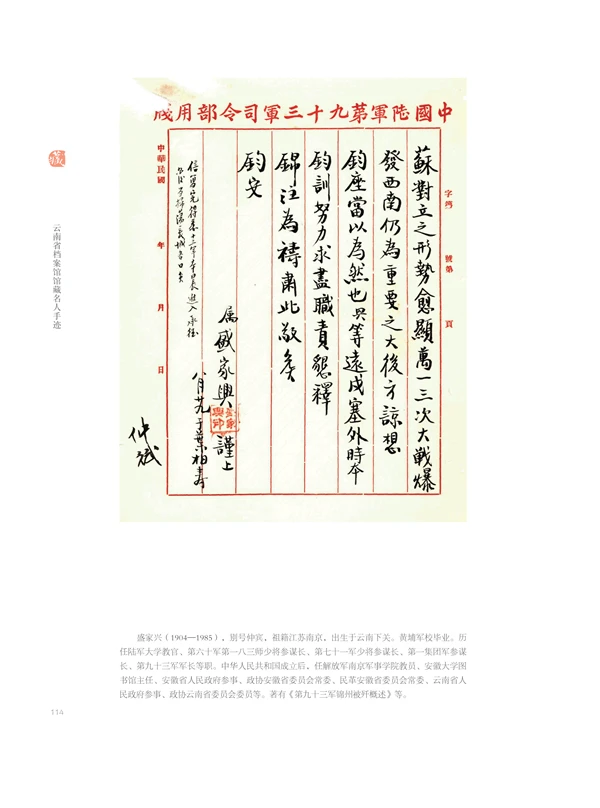 中國陸軍第九十三軍司令部用牋
字第 號第 頁
蘇對立之形勢愈顯萬一三次大戰爆
發西南仍為重要之大後方諒想
鈞座當以為然也興等遠戍塞外時本
鈞訓努力求盡職責懇釋
錦注為禱肅此敬叩
鈞安
属盛家興謹上
八月廿九于葉柏壽
中華民國 年 月 日
仲斌
云南省档案馆馆藏名人手迹
盛家兴（1904—1985），别号仲宾，祖籍江苏南京，出生于云南下关。黄埔军校毕业。历
任陆军大学教官、第六十军第一八三师少将参谋长、第七十一军少将参谋长、第一集团军参谋
长、第九十三军军长等职。中华人民共和国成立后，任解放军南京军事学院教员、安徽大学图
书馆主任、安徽省人民政府参事、政协安徽省委员会常委、民革安徽省委员会常委、云南省人
民政府参事、政协云南省委员会委员等。著有《第九十三军锦州被歼概述》等。
114